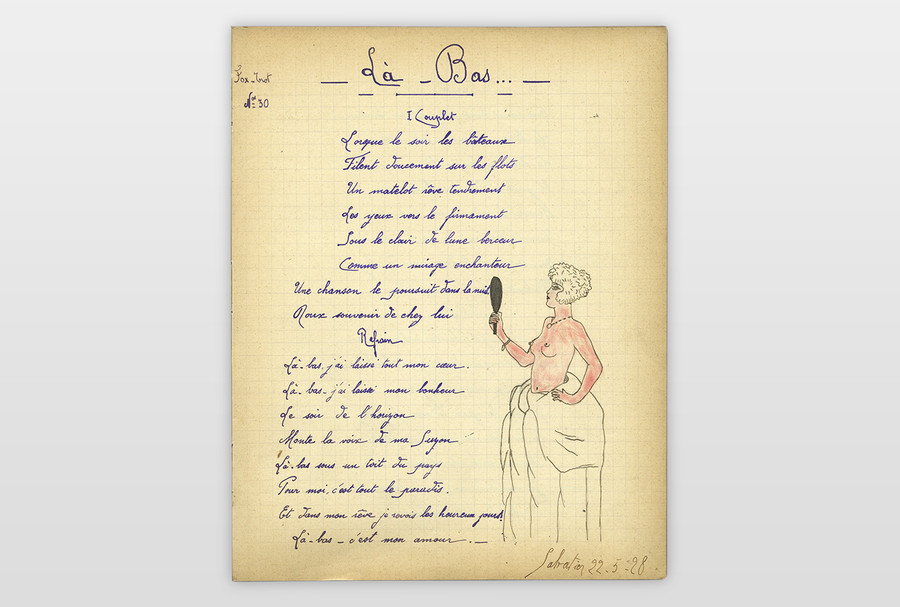 Là - Bas...
Fox-Trot
No 30
I Couplet
Lorsque le soir les bâteaux
Filent doucement sur les flots
Un matelot rêve tendrement
Les yeux vers le firmament
Sous le clair de lune berceur
Comme un mirage enchanteur
Une chanson le poursuit dans la nuit
Doux souvenir de chez lui
Refrain
Là-bas, j'ai laissé tout mon cœur.
Là-bas - j'ai laissé mon bonheur
Le soir de l'horizon
Monte la voix de ma Suzon
Là-bas sous un toit du pays
Pour moi, c'est tout le paradis.
Et dans mon rêve je revois les heureux jours!
Là-bas - c'est mon amour. _
22-5-28.